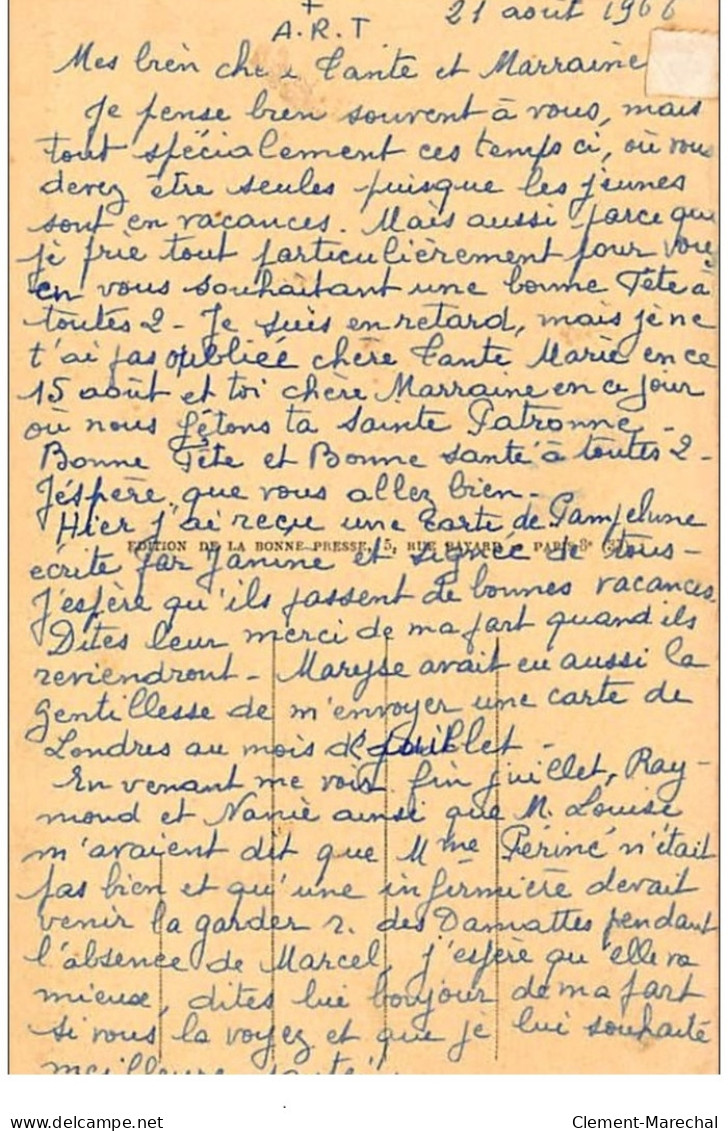 +
A.R.T
21 août 1966
Mes bien chère Tante et Marraine
Je pense bien souvent à vous, mais
tout spécialement ces temps ci, où vous
devez être seules puisque les jeunes
sont en vacances. Mais aussi parce que
je prie tout particulièrement pour vous
en vous souhaitant une bonne Fête à
toutes 2 - Je suis en retard, mais je ne
t'ai pas oubliée chère Tante Marie en ce
15 août et toi chère Marraine en ce jour
où nous fêtons ta Sainte Patronne -
Bonne Fête et Bonne santé à toutes 2 -
J'espère que vous allez bien -
Hier j'ai reçu une carte de Pampelune
EDITION DE LA BONNE PRESSE, 5, RUE BAYARD, PARIS-8e
écrite par Janine et signée de tous -
J'espère qu'ils passent de bonnes vacances.
Dites leur merci de ma part quand ils
reviendront - Maryse avait eu aussi la
gentillesse de m'envoyer une carte de
Londres au mois de Juillet -
En venant me voir fin juillet, Ray-
mond et Nanie ainsi que M. Louise
m'avaient dit que Mme Périné n'était
pas bien et qu'une infirmière devait
venir la garder r. des Damattes pendant
l'absence de Marcel, j'espère qu'elle va
mieux, dites lui bonjour de ma part
si vous la voyez et que je lui souhaite
meilleure santé
Clement-Marechal